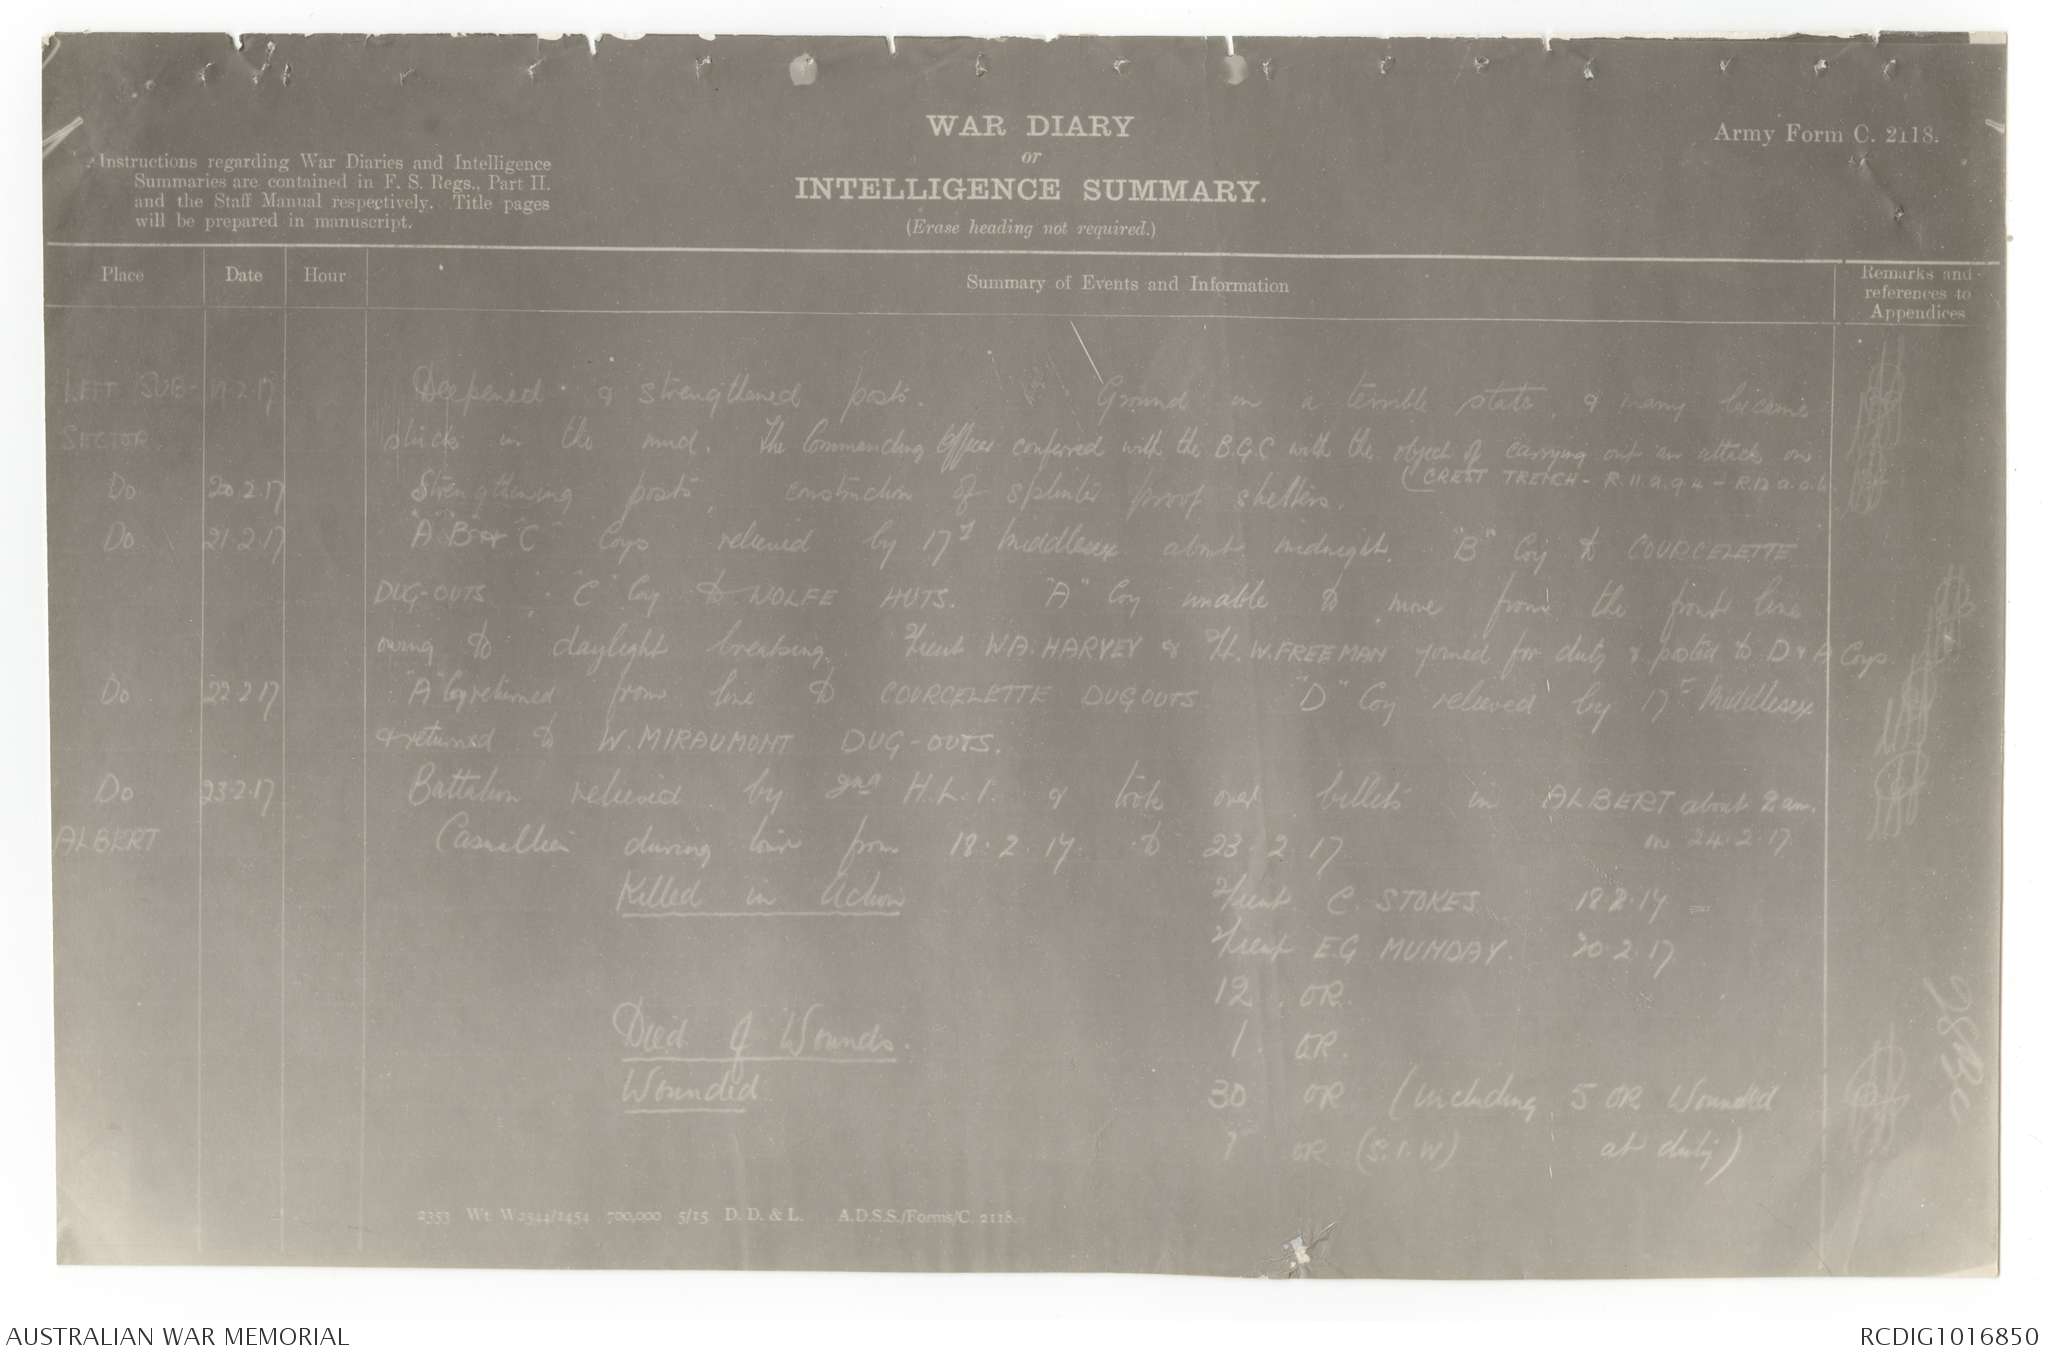 WAR DIARY
or
INTELLIGENCE SUMMARY.
(Erase heading not required.)
Army Form C. 2118.
Instructions regarding War Diaries and Intelligence
Summaries are contained in F. S. Regs., Part II.
and the Staff Manual respectively. Title pages
will be prepared in manuscript.
Place Date Hour Summary of Events and Information Remarks and
references to
Appendices
LEFT SUB- 19.2.17 Deepened & strengthened posts. Ground in a terrible state, & many became
SECTOR stuck in the mud. The Commanding Officer conferred with the B.G.C with the object of carrying out an attack on
(CREST TRENCH - R.11.a.9.4 -
Do 20.2.17 Strengthening posts, construction of splinter proof shelters.
Do 21.2.17 "A" "B" & "C" Coys relieved by 17th Middlesex about midnight. "B" Coy to COURCELETTE
DUG-OUTS. "C" Coy to WOLFE HUTS. "A" Coy unable to move from the front line
owing to daylight breaking. 2/Lieut W.A. HARVEY & 2/Lt. W. FREEMAN joined for duty & posted to D & A Coys.
Do 22.2.17 "A" Coy returned from line to COURCELETTE DUGOUTS. "D" Coy relieved by 17th Middlesex
& returned to W. MIRAUMONT DUG-OUTS.
Do 23.2.17 Battalion relieved by 2nd H.L.I. & took over billets in ALBERT about 2 am.
on 24.2.17
ALBERT Casualties during tour from 18.2.17. to 23.2.17
Killed in Action 2/Lieut C. STOKES 18.2.17
2/Lieut E.G MUNDAY. 20.2.17
12 OR.
Died of Wounds. 1 OR.
Wounded 30 OR (including 5 OR Wounded
at duty)
1 OR (S.I.W)
2353 Wt. W2544/1454 700,000 5/15 D. D. & L. A.D.S.S./Forms/C. 2118.
AUSTRALIAN WAR MEMORIAL
RCDIG1016850